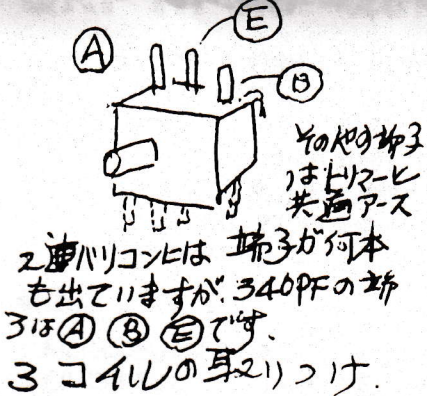 Ⓔ
Ⓐ
Ⓑ
その他の端子
はトリマーと
共通アース
2連バリコンには 端子が何本
も出ていますが、340PFの端
子はⒶ Ⓑ Ⓔです。
3 コイルの取りつけ.